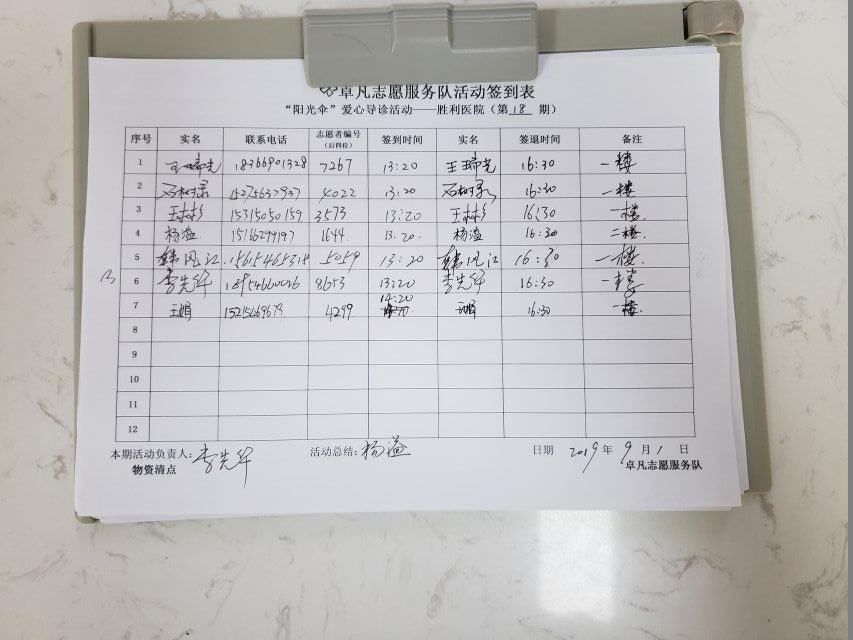 卓凡志愿服务队活动签到表
“阳光伞”爱心导诊活动——胜利医院（第 18 期）
序号 实名 联系电话 志愿者编号（后四位） 签到时间 实名 签退时间 备注
1 王瑞光 18366901328 7267 13:20 王瑞光 16:30 一楼
2 石树录 15275637937 4022 13:20 石树录 16:30 一楼
3 王林杉 15315050159 3573 13:20 王林杉 16:30 一楼.
4 杨溢 15166299197 1644. 13:20. 杨溢 16:30 二楼.
5 韩风江 1565465318 5059 13:20 韩风江 16:30 一楼.
6 李先华 8653 13:20 李先华 16:30 一楼
7 王娟 4299. 14:20 王娟 16:30 一楼.
8
9
10
11
12
本期活动负责人：李先华 活动总结：杨溢 日期 2019年 9月 1日
物资清点 卓凡志愿服务队